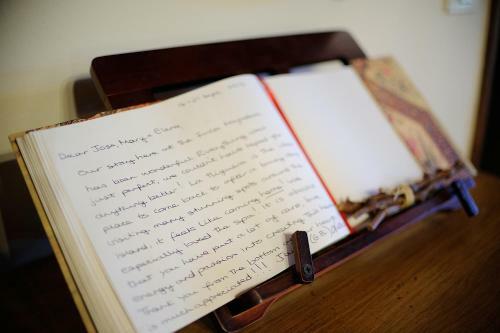 Sept.
Dear Jose, Mary + Elena,
Our stay here at the
has been wonderful. Everything was
just perfect, we couldn't have hoped for
anything better! is the
place to come back to after a long day
visiting many stunning spots around the
island, it feels like coming home. We
especially loved the spa! It is obvious
that you have put a lot of care, love,
energy and passion into creating this
Thank you from the bottom of our
is much appreciated!!!! (GB)